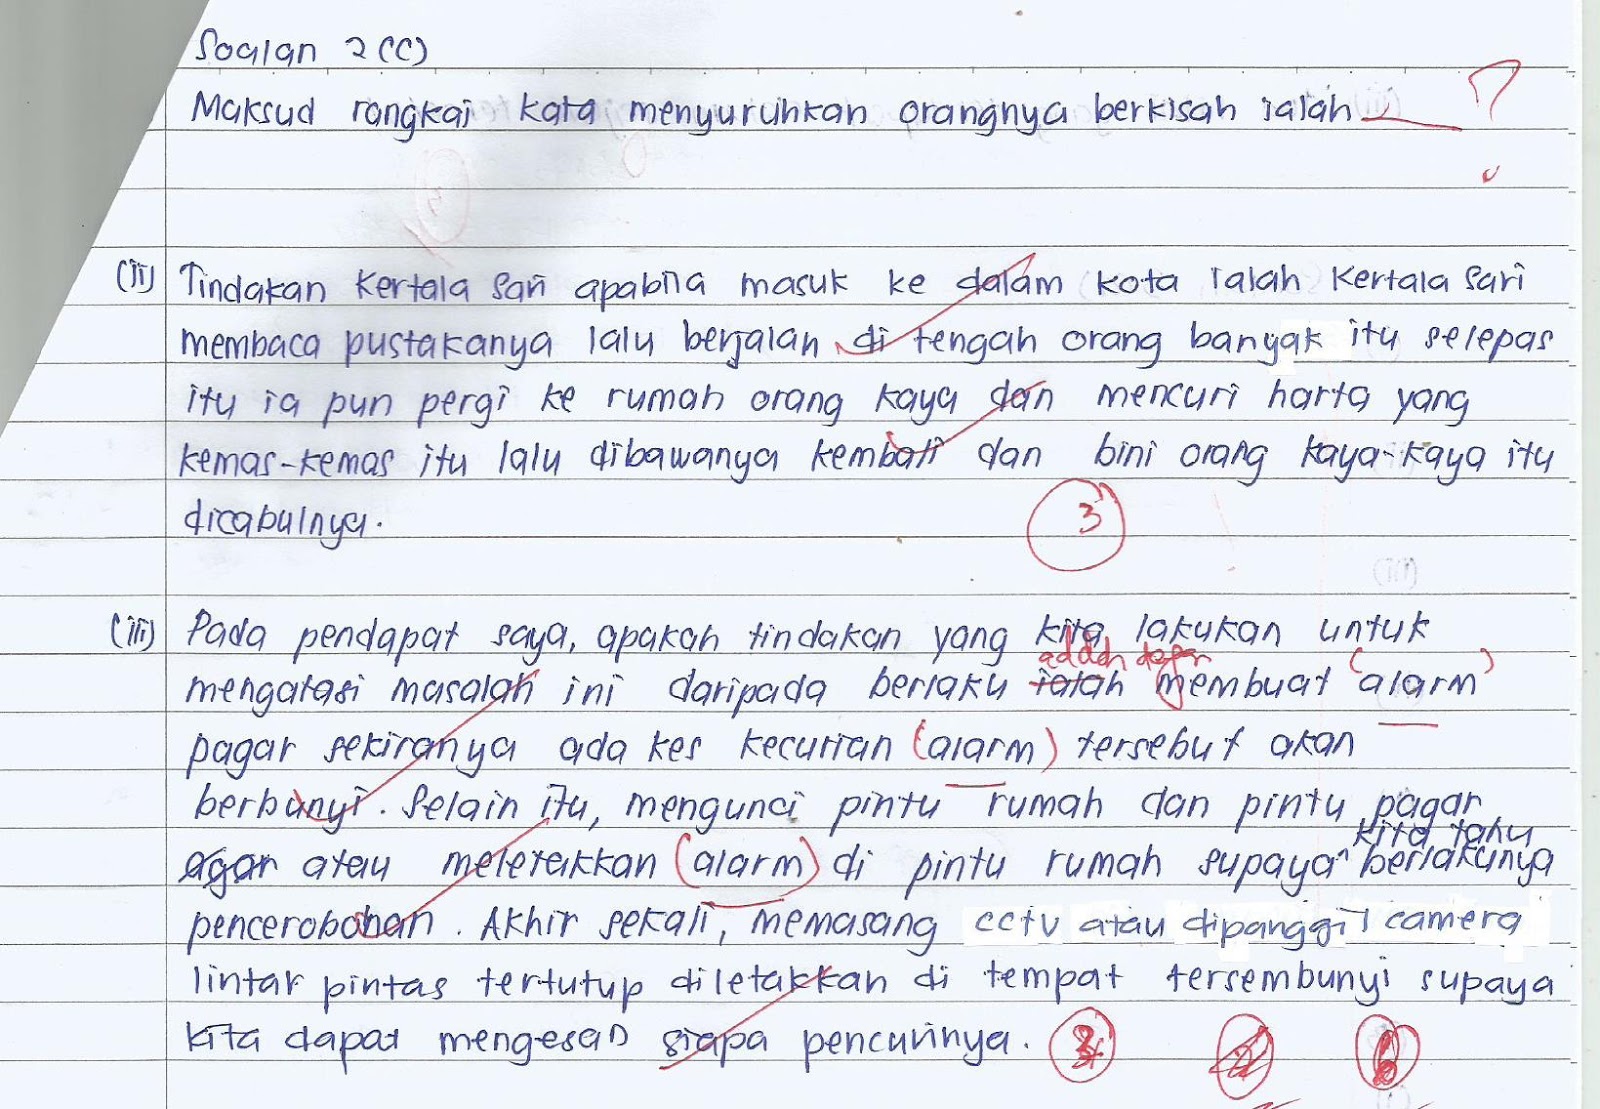 Soalan 2 (C)
Maksud rangkai kata menyuruhkan orangnya berkisah ialah ?
(ii) Tindakan Kertala Sari apabila masuk ke dalam kota ialah Kertala Sari
membaca pustakanya lalu berjalan di tengah orang banyak itu selepas
itu ia pun pergi ke rumah orang kaya dan mencuri harta yang
kemas-kemas itu lalu dibawanya kembali dan bini orang kaya-kaya itu
dicabulnya.
3
(iii) Pada pendapat saya, apakah tindakan yang kita lakukan untuk
adalah dengan
mengatasi masalah ini daripada berlaku ialah membuat (alarm)
pagar sekiranya ada kes kecurian (alarm) tersebut akan
berbunyi. Selain itu, mengunci pintu rumah dan pintu pagar
kita tahu
agar atau meletakkan (alarm) di pintu rumah supaya ^ berlakunya
pencerobohan. Akhir sekali, memasang cctv atau dipanggil camera
lintar pintas tertutup diletakkan di tempat tersembunyi supaya
kita dapat mengesan siapa pencurinya.